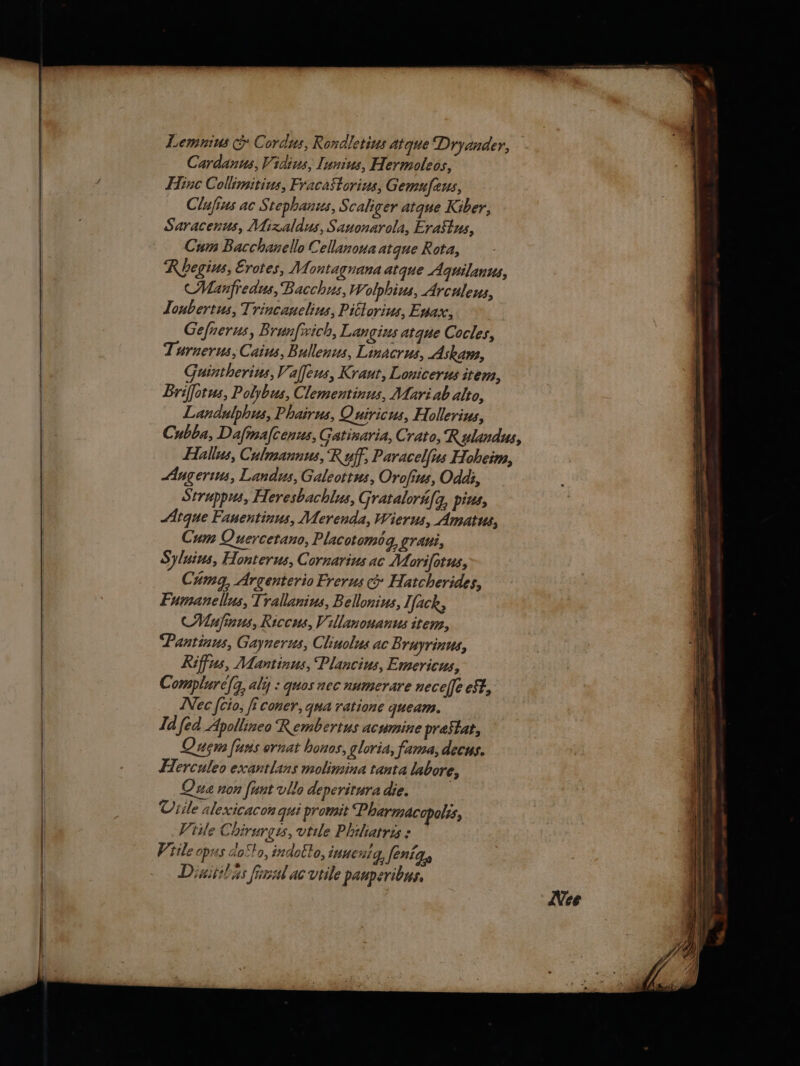 Lemnius & Cordus, Rondletius atque Dryander,
Cardanus, Vidius, Iunius, Hermoleos,
Hinc Collimitius, Fracastorius, Gemusæus,
Clusius ac Stephanus, Scaliger atque Kiber,
Saracenus, Mizaldus, Sauonarola, Erastus,
Cum Bacchanello Cellanoua atque Rota,
Rhegius, Erotes, Montagnana atque Aquilanus,
Manfredus, Bacchus, Wolphius, Arculeus,
Ioubertus, Trincauelius, Pictorius, Euax,
Gesnerus, Brunswich, Langius atque Cocles,
Turnerus, Caius, Bullenus, Linacrus, Askam,
Guintherius, Vasseus, Kraut, Lonicerus item,
Brissotus, Polybus, Clementinus, Mari ab alto,
Landulphus, Phairus, Quiricus, Hollerius,
Cubba, Dasmascenus, Gatinaria, Crato, Rulandus,
Hallus, Culmannus, Ruff, Paracelsus Hoheim,
Augerius, Landus, Galeottus, Orosius, Oddi,
Struppus, Heresbachlus, Gratalorúsq, pius,
Atque Fauentinus, Merenda, Wierus, Amatus,
Cum Quercetano, Placotomóq, graui,
Syluius, Honterus, Cornarius ac Morisotus,
Cúmq, Argenterio Frerus & Hatcherides,
Fumanellus, Trallanius, Bellonius, Isack,
Musinus, Riccus, Villanouanus item,
Pantinus, Gaynerus, Cliuolus ac Bruyrinus,
Riffius, Mantinus, Plancius, Emericus,
Complurésq, alij : quos nec numerare necesse est,
Nec scio, si coner, qua ratione queam.
Id sed Apollineo Rembertus acumine præstat,
Quem suus ornat honos, gloria, fama, decus.
Herculeo exantlans molimina tanta labore,
Quæ non sunt vllo deperitura die.
Vtile alexicacon qui promit Pharmacopolis,
Vtile Chirurgis, vtile Philiatris :
Vtile opus docto, indocto, iuueniq, seniq,
Diuitibus simul ac vtile pauperibus.
Nec